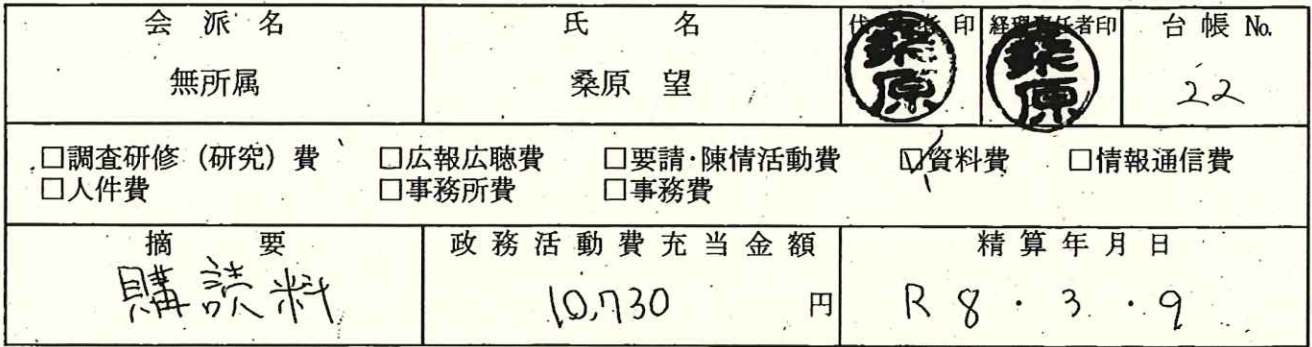 会派名 氏名 代表者印 経理責任者印 台帳 No.
無所属 桑原 望 桑原 桑原 22
□調査研修（研究）費 □広報広聴費 □要請・陳情活動費 ☑資料費 □情報通信費
□人件費 □事務所費 □事務費
摘要 政務活動費充当金額 精算年月日
購読料 10,730 円 R8・3・9